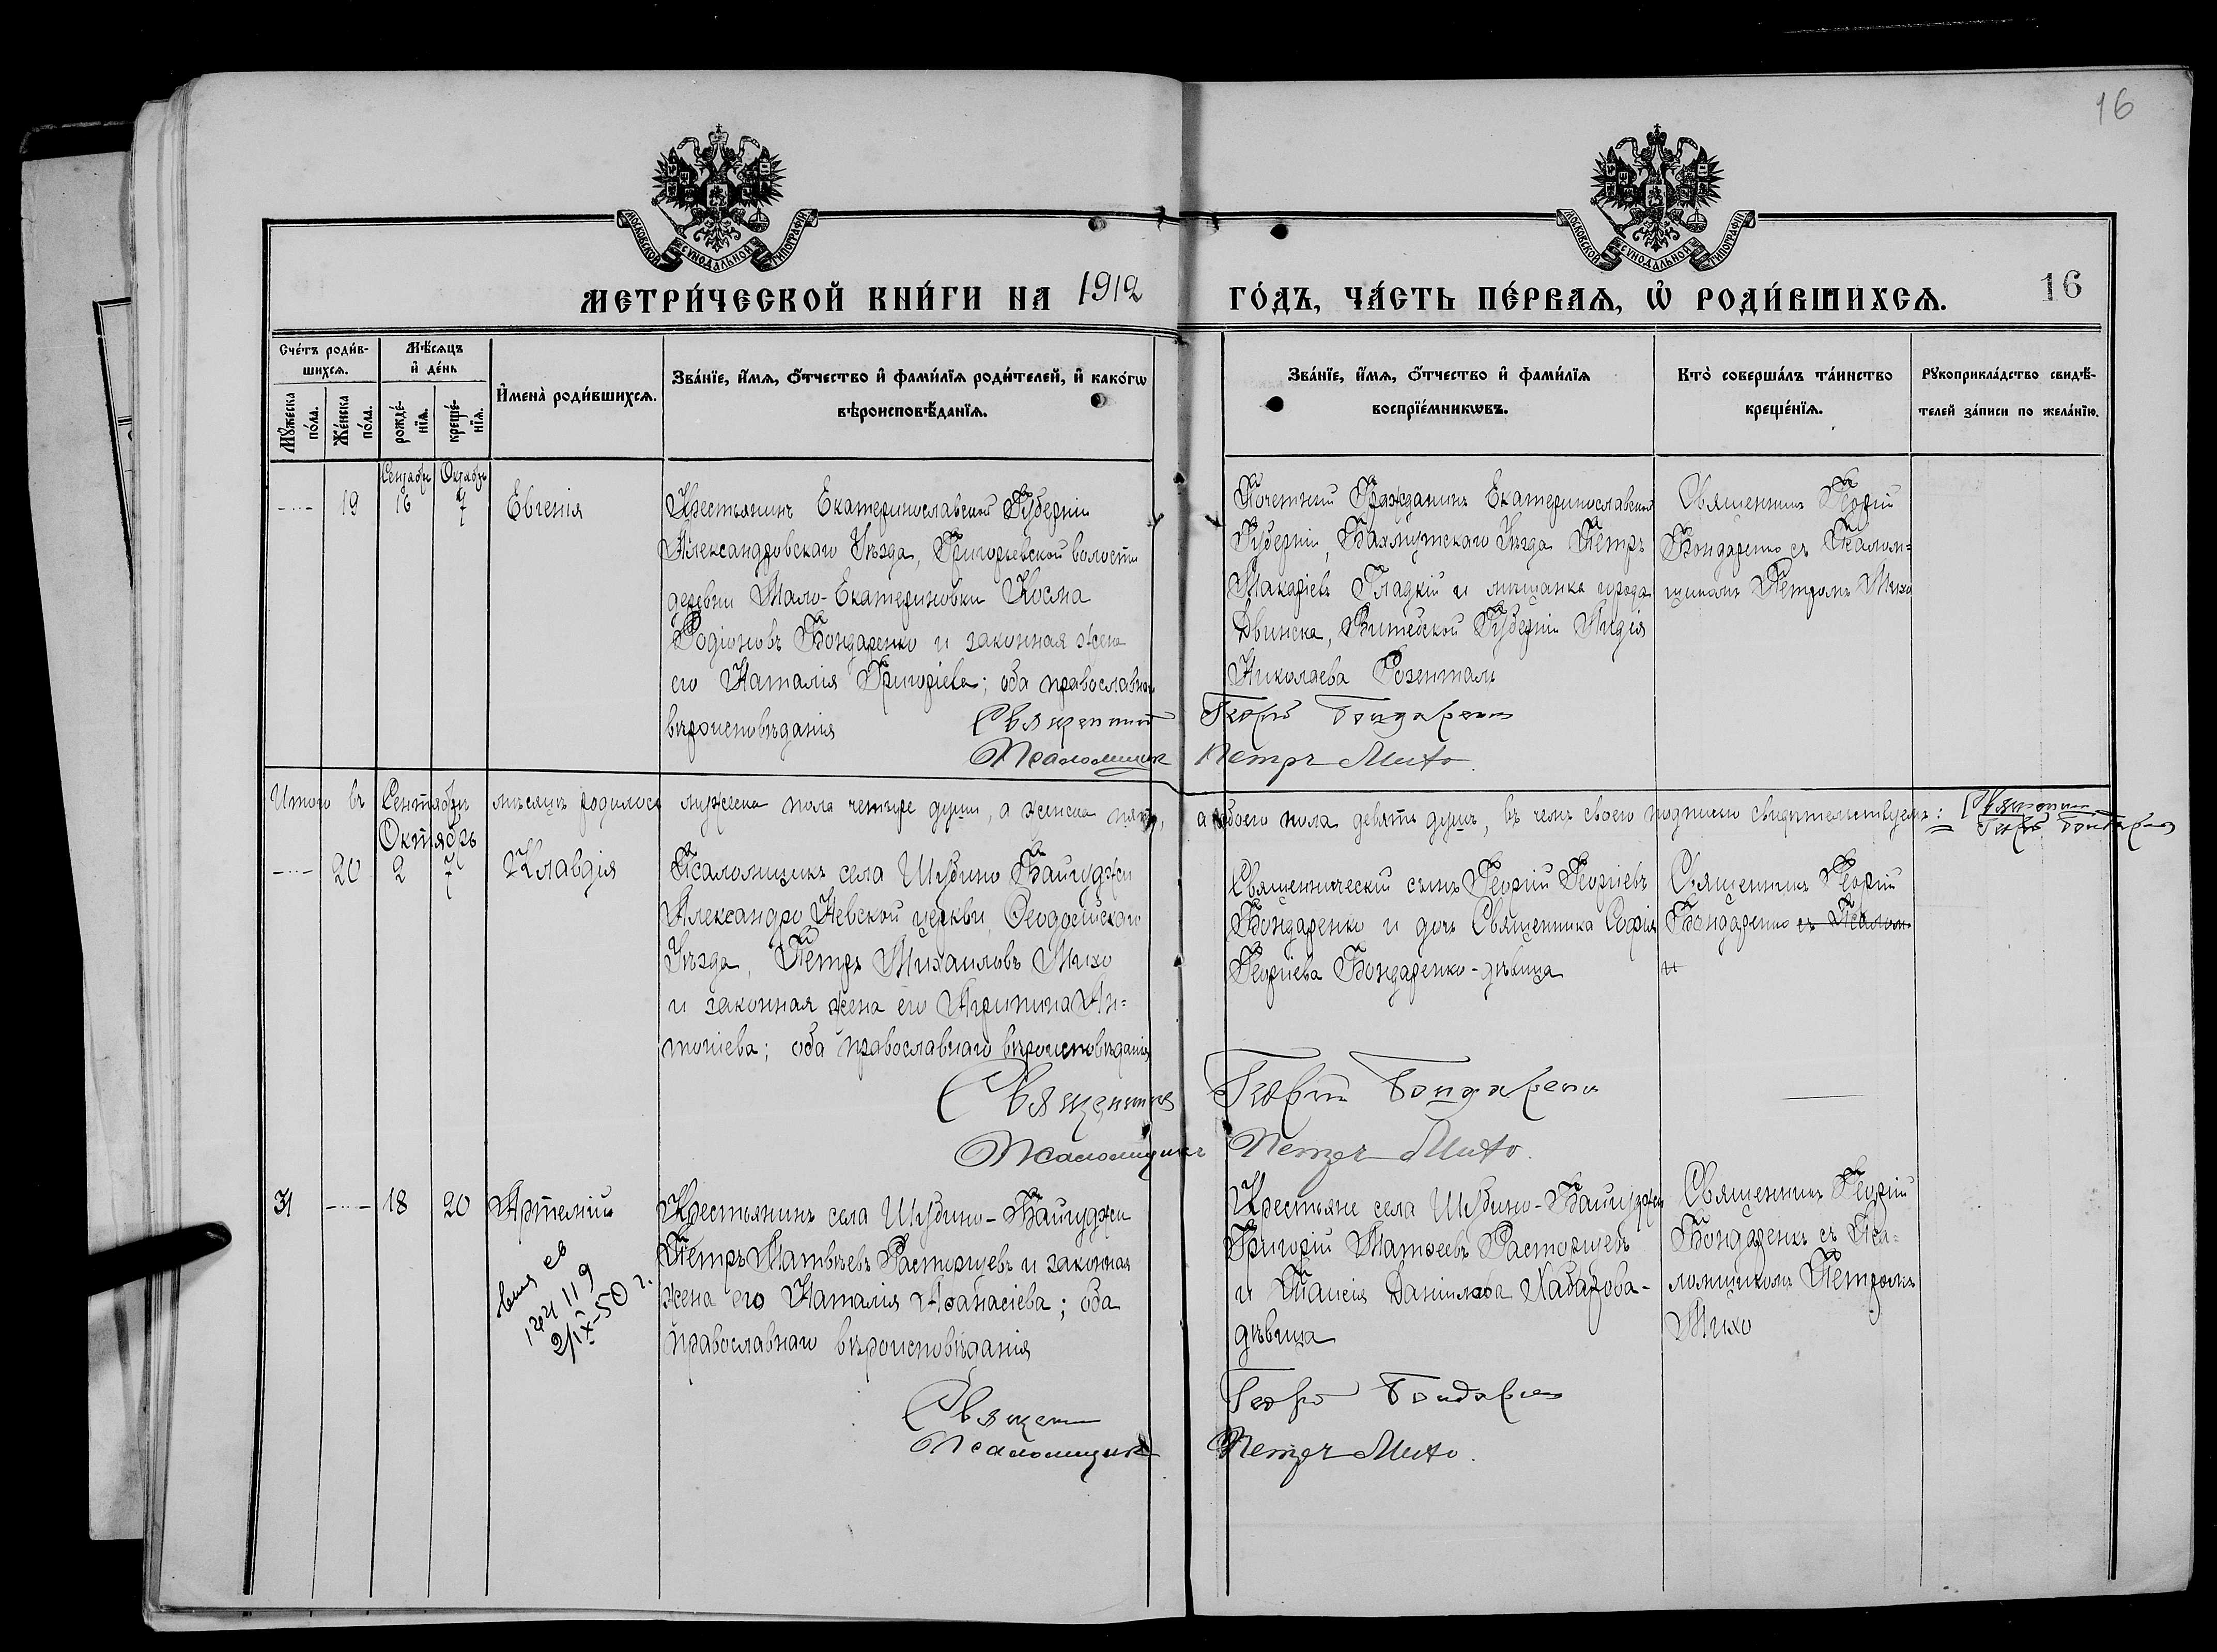 16
МОСКОВСКОЙ СѴНОДАЛЬНОЙ ТИПОГРАФІИ
МОСКОВСКОЙ СѴНОДАЛЬНОЙ ТИПОГРАФІИ
МЕТРИ́ЧЕСКОЙ КНИ́ГИ НА 1912
ГО́ДЪ, ЧА́СТЬ ПЕ́РВАѦ, Ѡ҆ РОДИ́ВШИХСѦ.
16
Сче́тъ роди́в-
шихсѧ.
Мѣ́сѧцъ
и҆ де́нь
Мꙋ́жеска
по́ла.
Же́нска
по́ла.
рожде́-
нїѧ.
креще́-
нїѧ.
И҆мена̀ роди́вшихсѧ.
Зва́нїе, и҆́мѧ, ѻ҆́тчество и҆ фами́лїѧ роди́телей, и҆ како́гѡ
вѣроисповѣ́данїѧ.
Зва́нїе, и҆́мѧ, ѻ҆́тчество и҆ фами́лїѧ
воспрїе́мникѡвъ.
Кто̀ соверша́лъ та́инство
креще́нїѧ.
Рꙋкоприкла́дство свидѣ́-
телей за́писи по жела́нїю.
Сентябрь Октябрь
19 16 7 Евгенія
Крестьянинъ Екатеринославской Губерніи
Александровскаго Уѣзда, Григорьевской волости
деревни Мало-Екатериновки Косма
Родіоновъ Бондаренко и законная жена
его Наталія Григоріева; оба православнаго
вѣроисповѣданія
Священникъ
Псаломщикъ
Почетный Гражданинъ Екатеринославской
Губерніи, Бахмутскаго Уѣзда Петръ
Макаріевъ Гладкій и мѣщанка города
Двинска, Витебской Губерніи Лидія
Николаева Розенталь
Георгій Бондаренко
Петръ Михо.
Священникъ Георгій
Бондаренко съ Псалом=
щикомъ Петромъ Михо
Итого въ Сентябрѣ мѣсяцѣ родилось мужеска пола четыре души, а женска пять,
а обоего пола девять душъ, въ чемъ своею подписью свидѣтельствуемъ: Священникъ
Георгій Бондаренко
Октябрь
20 2 7 Клавдія
Псаломщикъ села Шубино Байгуджи
Александро Невской церкви, Ѳеодосійскаго
Уѣзда, Петръ Михаиловъ Михо
и законная жена его Агрипина Ан=
тоніева; оба православнаго вѣроисповѣданія
Священникъ
Псаломщикъ
Священническій сынъ Георгій Георгіевъ
Бондаренко и дочь Священника Софія
Георгіева Бондаренко-дѣвица
Георгій Бондаренко
Петръ Михо.
Священникъ Георгій
Бондаренко съ Псалом
31 18 20 Артемій
119
2/IX-50 г.
Крестьянинъ села Шубино-Байгуджи
Петръ Матвѣевъ Расторгуевъ и законная
жена его Наталія Аѳанасіева; оба
православнаго вѣроисповѣданія
Священникъ
Псаломщикъ
Крестьяне села Шубино-Байгуджи
Григорій Матѳеевъ Расторгуевъ
и Таисія Даніилова Хабарова-
дѣвица
Георгій Бондаренко
Петръ Михо.
Священникъ Георгій
Бондаренко съ Пса=
ломщикомъ Петромъ
Михо